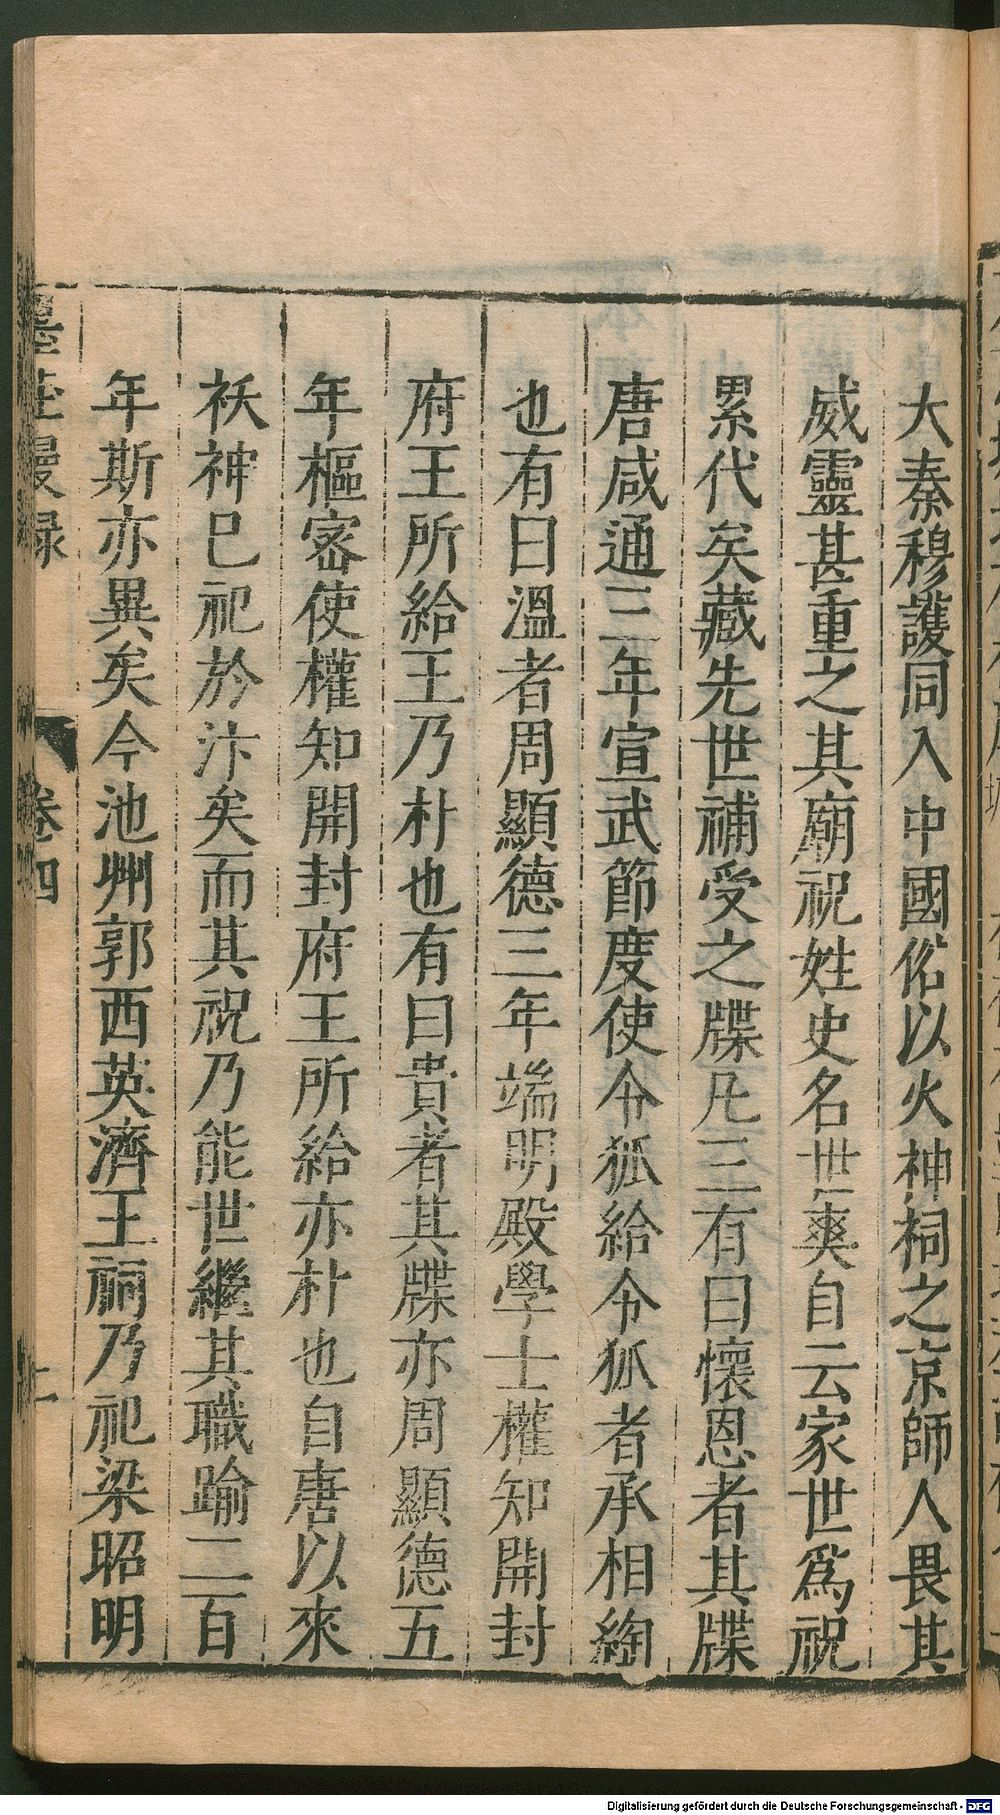 大秦穆護同入中國俗以火神祠之京師人畏其
威靈甚重之其廟祝姓史名世爽自云家世爲祝
累代矣藏先世補受之牒凡三有曰懷恩者其牒
唐咸通三年宣武節度使令狐給令狐者承相綯
也有曰溫者周顯德三年端明殿學士權知開封
府王所給王乃朴也有曰貴者其牒亦周顯德五
年樞密使權知開封府王所給亦朴也自唐以來
祆神巳祀於汴矣而其祝乃能世繼其職踰二百
年斯亦異矣今池州郭西英濟王祠乃祀梁昭明
墨莊漫录
卷四
Digitalisierung gefördert durch die Deutsche Forschungsgemeinschaft - DFG